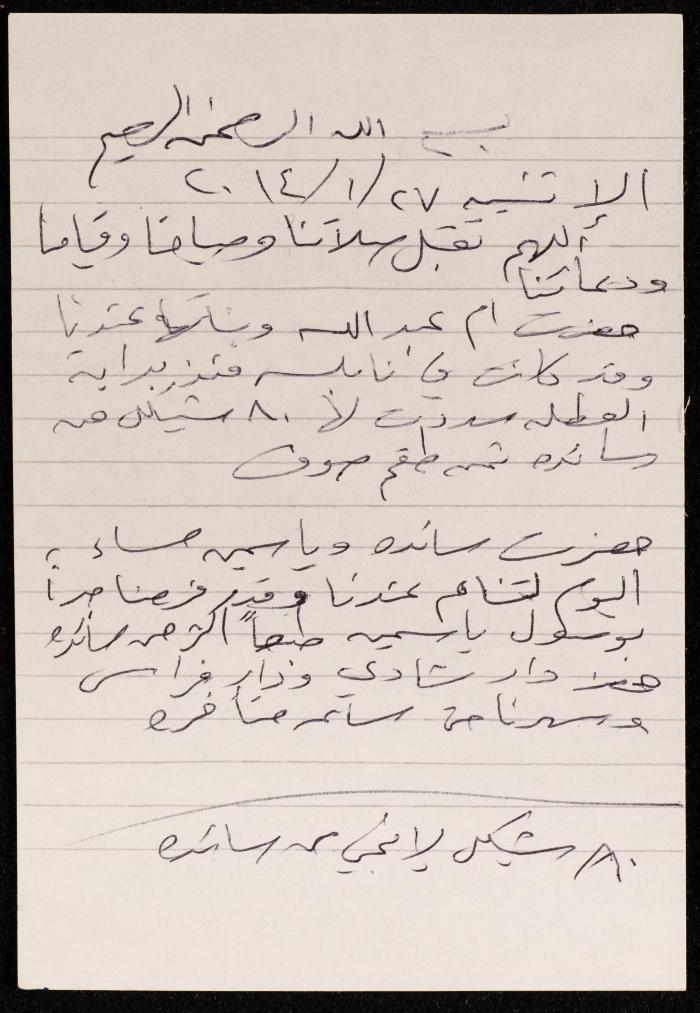 بسم الله الرحمن الرحيم
الاثنين ٢٧/١/٢٠١٤
أللهم تقبل سلاتنا وصيامنا وقيامنا
ودعائنا
حضرت ام عبد الله وبناتها عندنا
وقد كانت في نابلس منذ بداية
العطله سددت لها ٨٠ شيكل من
سائده ثمن طقم صوف
حضرت سائده وياسمين مساء
اليوم لتنام عندنا وقد فرحنا جداً
بوسول ياسمين طبعاً اكثر من سائده
حضر دار شادي ودار فراس
وسهرنا حتى ساعه متأخره
٨٠ شيكل من سائده